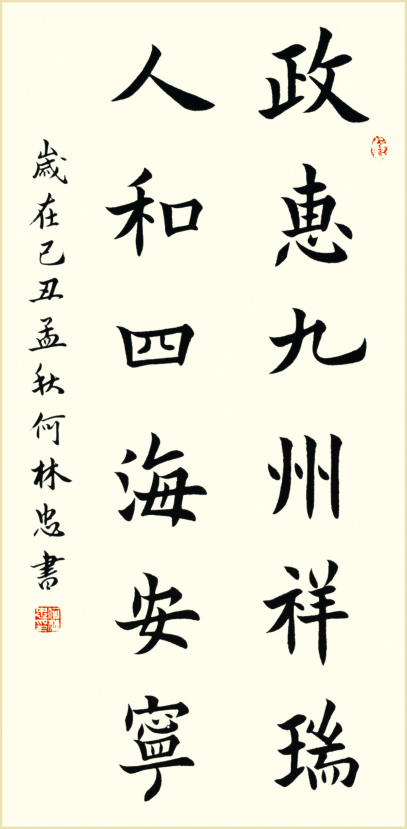 政惠九州祥瑞
人和四海安寧
歲在己丑孟秋何林忠書